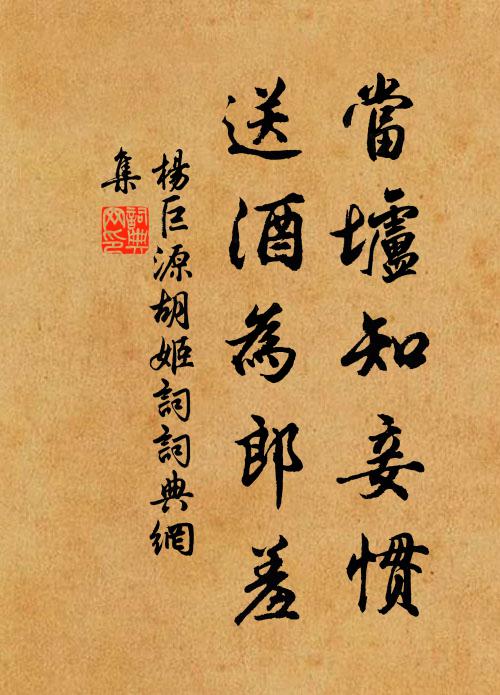 當壚知妾慣
送酒為郎羞
楊巨源胡姬詞詞典網
集
詞典
网印